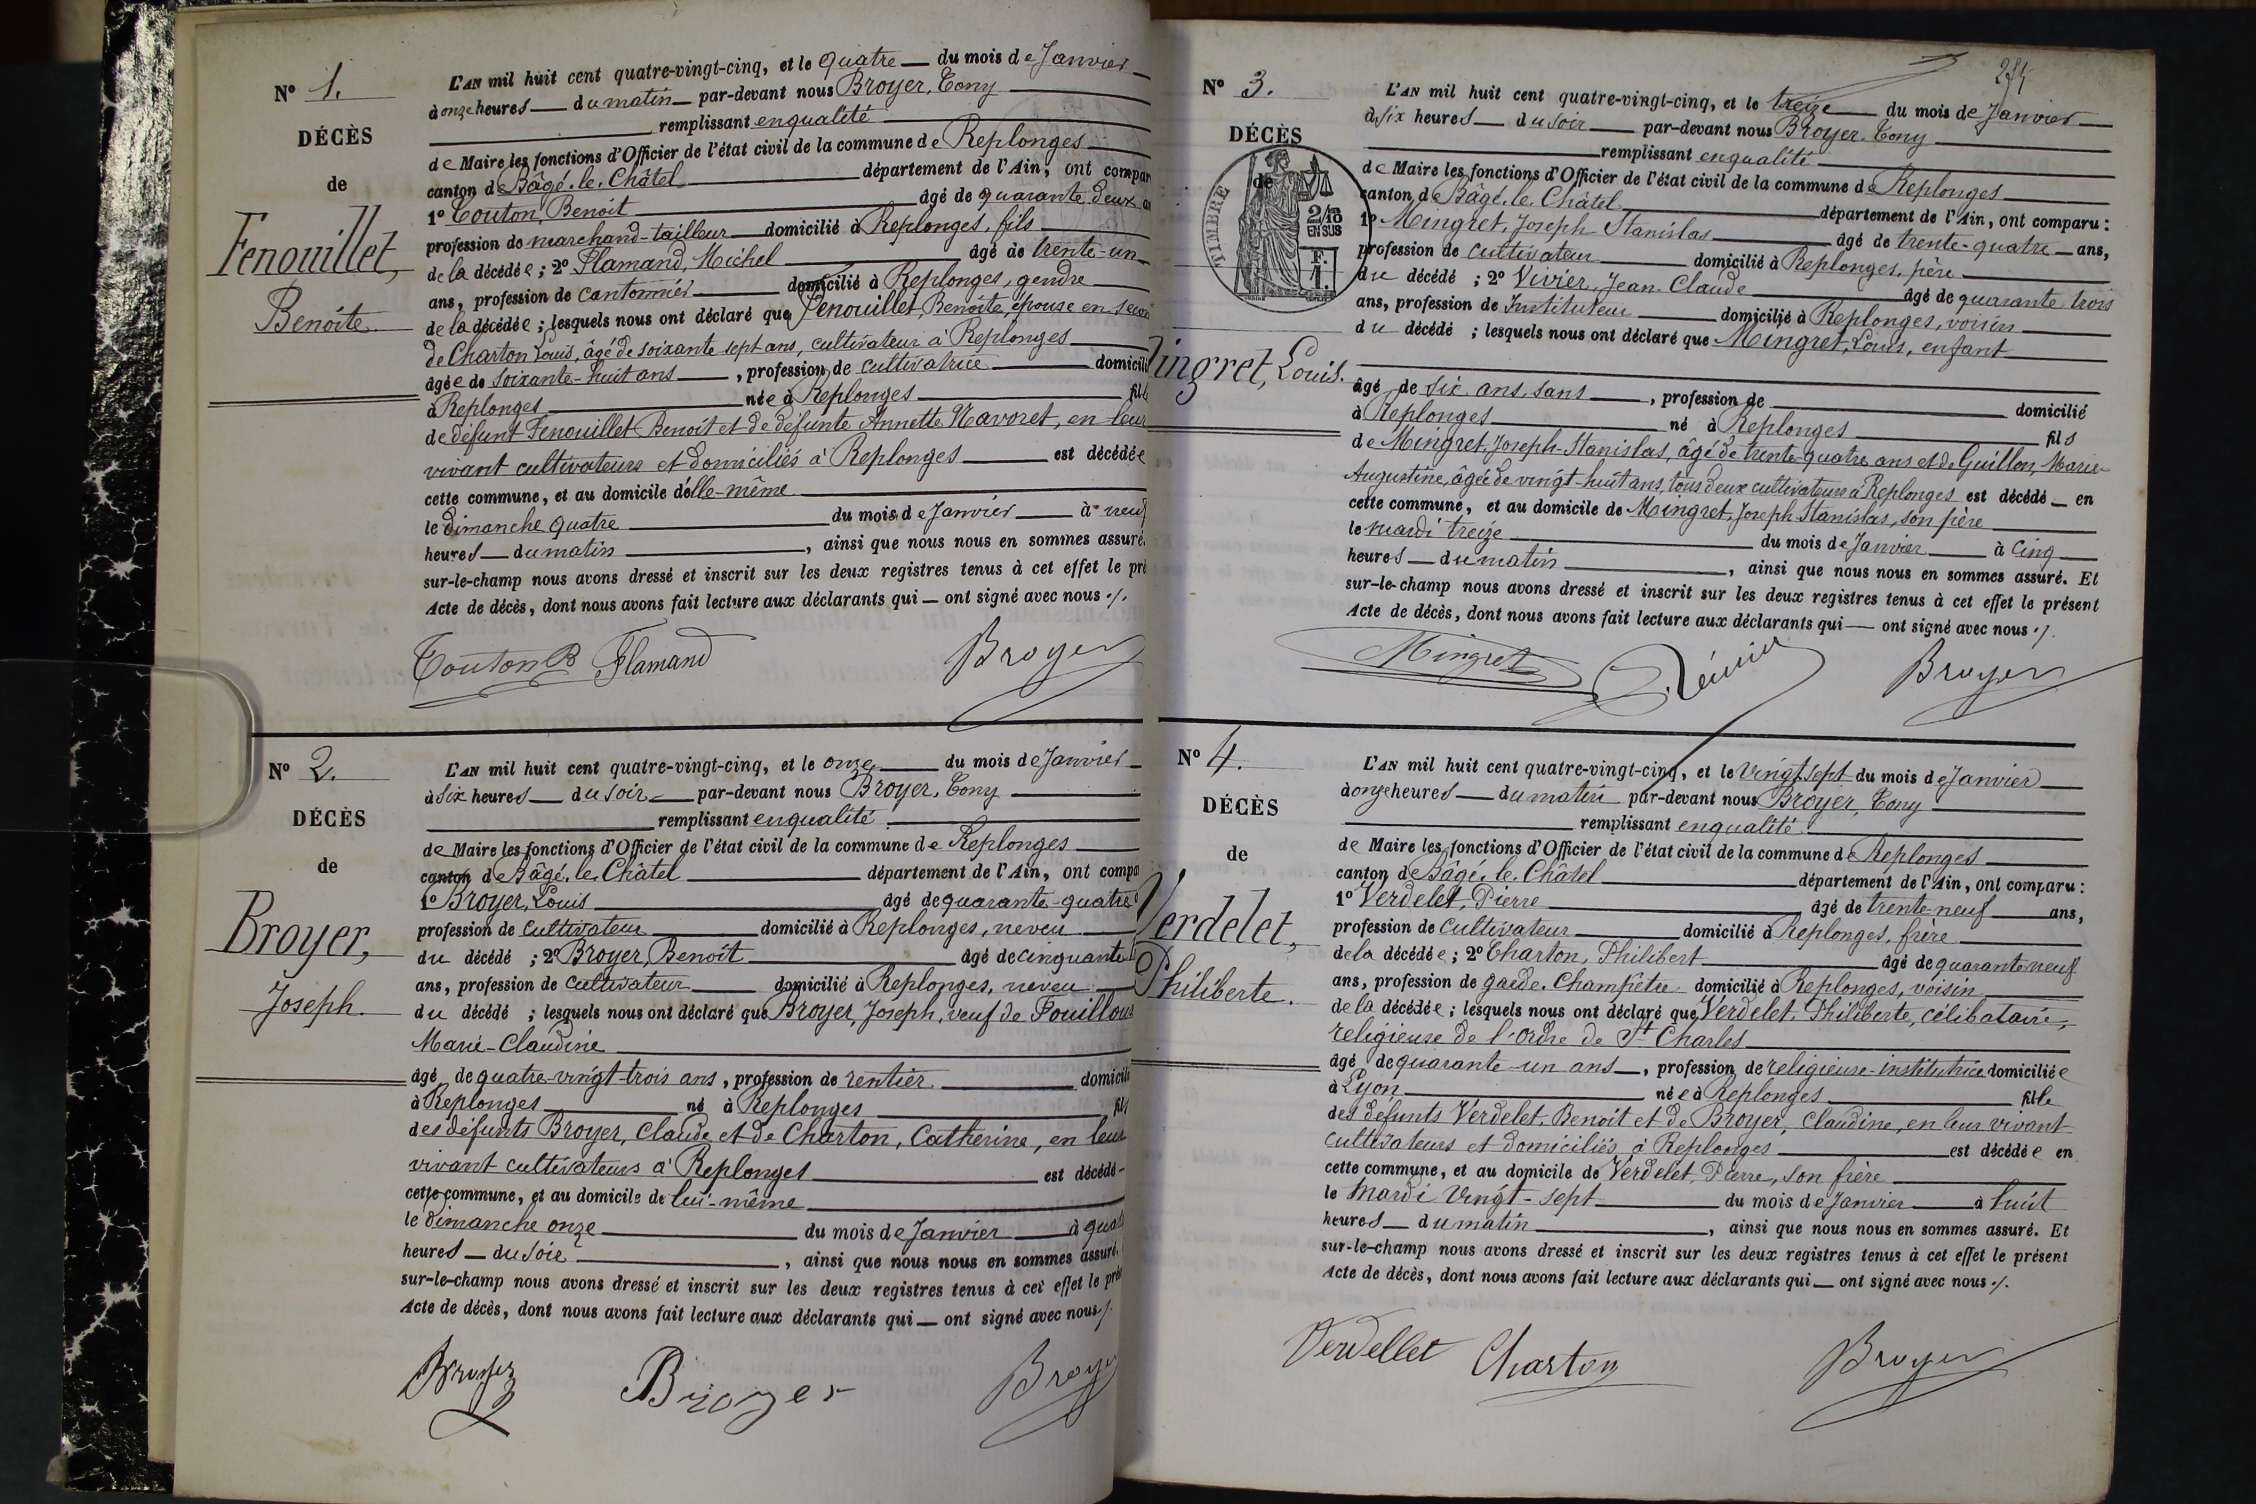 N° 1.
DÉCÈS
de
Fenouillet,
Benoite
L'AN mil huit cent quatre-vingt-cinq, et le quatre du mois de Janvier
à onze heures du matin par-devant nous Broyer, Tony
remplissant en qualité
de Maire les fonctions d'Officier de l'état civil de la commune de Replonges
canton de Bâgé-le-Châtel département de l'Ain, ont compar
1° Touton, Benoit âgé de quarante-deux
profession de marchand-tailleur domicilié à Replonges, fils
de la décédée ; 2° Flamand, Michel âgé de trente-un
ans, profession de cantonnier domicilié à Replonges, gendre
de la décédée ; lesquels nous ont déclaré que Fenouillet, Benoite, épouse en
de Charton Louis, âgé de soixante sept ans, cultivateur à Replonges
âgée de soixante-huit ans, profession de cultivatrice domicili
à Replonges née à Replonges fil
de défunt Fenouillet Benoit et de défunte Annette Navoret, en leur
vivant cultivateurs et domiciliés à Replonges est décédée
cette commune, et au domicile d'elle-même
le dimanche quatre du mois de Janvier à neuf
heures du matin, ainsi que nous nous en sommes assuré.
sur-le-champ nous avons dressé et inscrit sur les deux registres tenus à cet effet le pré
Acte de décès, dont nous avons fait lecture aux déclarants qui — ont signé avec nous ./.
Touton B Flamand Broyer
N° 2.
DÉCÈS
de
Broyer,
Joseph.
L'AN mil huit cent quatre-vingt-cinq, et le onze du mois de Janvier
à six heures du soir par-devant nous Broyer, Tony
remplissant en qualité
de Maire les fonctions d'Officier de l'état civil de la commune de Replonges
canton de Bâgé-le-Châtel département de l'Ain, ont compa
1° Broyer, Louis âgé de quarante-quatre
profession de cultivateur domicilié à Replonges, neveu
du décédé ; 2° Broyer, Benoît âgé de cinquante
ans, profession de cultivateur domicilié à Replonges, neveu
du décédé ; lesquels nous ont déclaré que Broyer, Joseph, veuf de Fouilloux
Marie-Claudine
âgé de quatre-vingt-trois ans, profession de rentier domicili
à Replonges né à Replonges fil
des défunts Broyer, Claude et de Charton, Catherine, en leur
vivant cultivateurs à Replonges est décédé
cette commune, et au domicile de lui-même
le dimanche onze du mois de Janvier à quat
heures du soir, ainsi que nous nous en sommes assuré.
sur-le-champ nous avons dressé et inscrit sur les deux registres tenus à cet effet le pré
Acte de décès, dont nous avons fait lecture aux déclarants qui — ont signé avec nous ./.
Broyer Broyer Broye
N° 3.
DÉCÈS
de
TIMBRE
2/10
EN SUS
F.
1.
ingret, Louis.
L'AN mil huit cent quatre-vingt-cinq, et le treize du mois de Janvier
à six heures du soir par-devant nous Broyer, Tony
remplissant en qualité
de Maire les fonctions d'Officier de l'état civil de la commune de Replonges
canton de Bâgé-le-Châtel département de l'Ain, ont comparu :
1° Mingret, Joseph Stanislas âgé de trente-quatre ans,
profession de cultivateur domicilié à Replonges, père
du décédé ; 2° Vivier, Jean-Claude âgé de quarante-trois
ans, profession de Instituteur domicilié à Replonges, voisin
du décédé ; lesquels nous ont déclaré que Mingret, Louis, enfant
âgé de six ans, sans, profession de domicilié
à Replonges né à Replonges fils
de Mingret, Joseph-Stanislas, âgé de trente-quatre ans et de Guillon, Marie-
Augustine, âgée de vingt-huit ans, tous deux cultivateurs à Replonges est décédé en
cette commune, et au domicile de Mingret, Joseph Stanislas, son père
le mardi treize du mois de Janvier à cinq
heures du matin, ainsi que nous nous en sommes assuré. Et
sur-le-champ nous avons dressé et inscrit sur les deux registres tenus à cet effet le présent
Acte de décès, dont nous avons fait lecture aux déclarants qui — ont signé avec nous ./.
Mingret Broyer
N° 4.
DÉCÈS
de
Verdelet,
Philiberte.
L'AN mil huit cent quatre-vingt-cinq, et le vingt-sept du mois de Janvier
à onze heures du matin par-devant nous Broyer, Tony
remplissant en qualité
de Maire les fonctions d'Officier de l'état civil de la commune de Replonges
canton de Bâgé-le-Châtel département de l'Ain, ont comparu :
1° Verdelet, Pierre âgé de trente-neuf ans,
profession de cultivateur domicilié à Replonges, frère
de la décédée ; 2° Charton, Philibert âgé de quarante-neuf
ans, profession de garde-Champêtre domicilié à Replonges, voisin
de la décédée ; lesquels nous ont déclaré que Verdelet, Philiberte, célibataire,
religieuse de l'ordre de St Charles
âgé de quarante-un ans, profession de religieuse-institutrice domiciliée
à Lyon née à Replonges fille
des défunts Verdelet, Benoit et de Broyer, Claudine, en leur vivant
cultivateurs et domiciliés à Replonges est décédée en
cette commune, et au domicile de Verdelet, Pierre, son frère
le Mardi Vingt-sept du mois de Janvier à huit
heures du matin, ainsi que nous nous en sommes assuré. Et
sur-le-champ nous avons dressé et inscrit sur les deux registres tenus à cet effet le présent
Acte de décès, dont nous avons fait lecture aux déclarants qui — ont signé avec nous ./.
Verdellet Charton Broyer